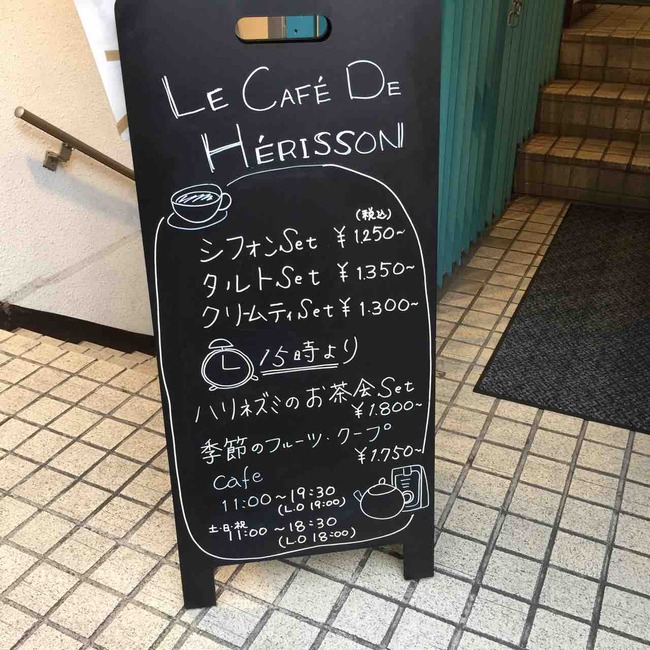 LE CAFÉ DE
HÉRISSON
(税込)
シフォンSet ¥1,250~
タルトSet ¥1,350~
クリームティSet ¥1,300~
15時より
ハリネズミのお茶会Set
¥1,800~
季節のフルーツ・クープ
¥1,750~
Cafe
11:00~19:30
(L.O 19:00)
土・日・祝
11:00~18:30
(L.O 18:00)